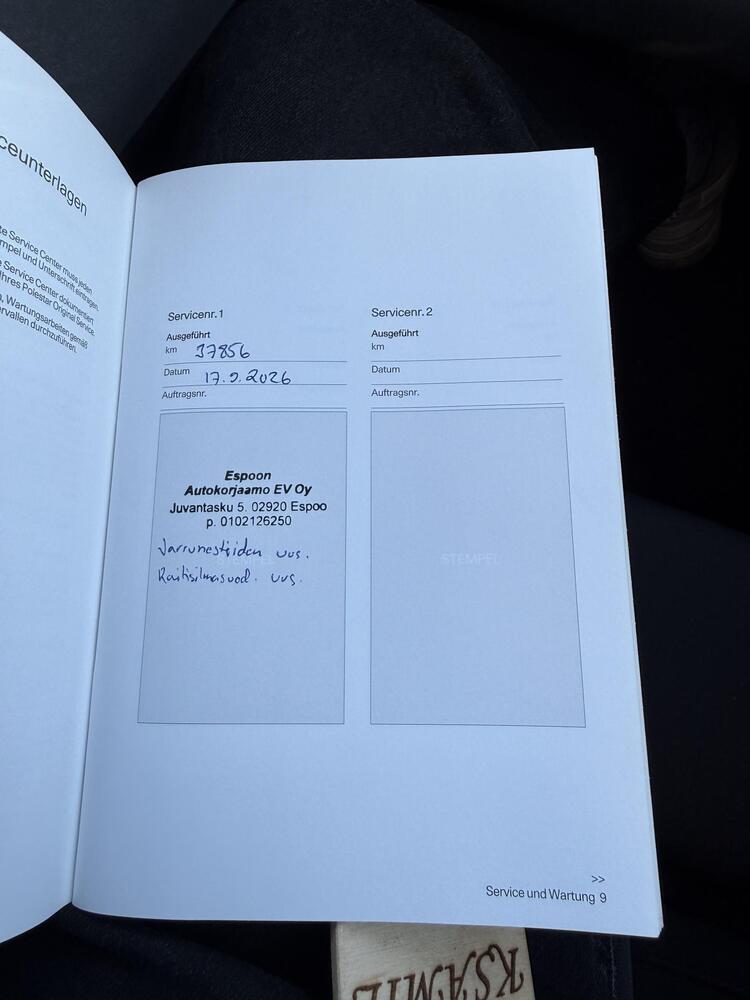 ceunterlagen
te Service Center muss jeden
mpel und Unterschrift eintragen.
e Service Center dokumentiert
Ihres Polestar Original Service.
n, Wartungsarbeiten gemäß
ervallen durchzuführen.
Servicenr. 1
Ausgeführt
km 37856
Datum 17.9.2026
Auftragsnr.
Espoon
Autokorjaamo EV Oy
Juvantasku 5. 02920 Espoo
p. 0102126250
Jarrunesteiden uus.
STEMPEL
Raitisilmasuod. uus.
Servicenr. 2
Ausgeführt
km
Datum
Auftragsnr.
STEMPEL
>>
Service und Wartung 9
KSAMIL